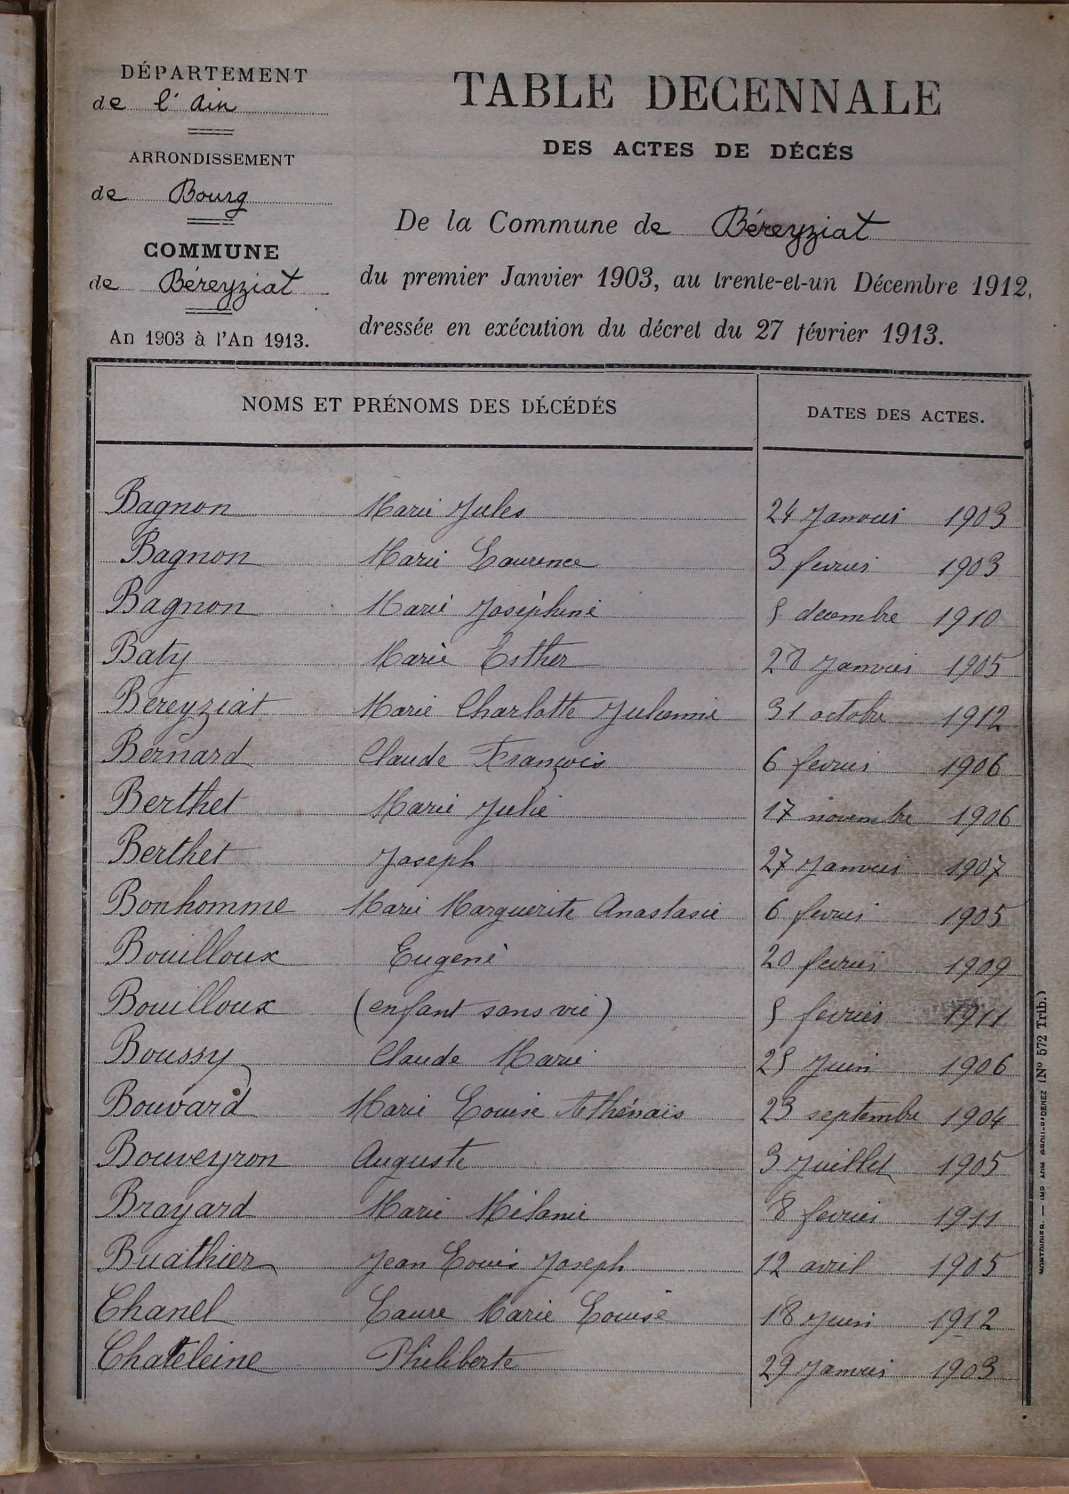 DÉPARTEMENT
de l'Ain
ARRONDISSEMENT
de Bourg
COMMUNE
de Béreyziat
An 1903 à l'An 1913.
TABLE DECENNALE
DES ACTES DE DÉCÉS
De la Commune de Béreyziat
du premier Janvier 1903, au trente-et-un Décembre 1912,
dressée en exécution du décret du 27 février 1913.
NOMS ET PRÉNOMS DES DÉCÉDÉS DATES DES ACTES.
Bagnon Marie Jules 24 Janvier 1903
Bagnon Marie Laurence 3 fevrier 1903
Bagnon Marie Joséphine 5 decembre 1910
Baty Marie Esther 28 Janvier 1905
Bereyziat Marie Charlotte Julienne 31 octobre 1912
Bernard Claude François 6 fevrier 1906
Berthet Marie Julie 17 novembre 1906
Berthet Joseph 27 Janvier 1907
Bonhomme Marie Marguerite Anastasie 6 fevrier 1905
Bouilloux Eugenie 20 fevrier 1909
Bouilloux (enfant sans vie) 5 février 1911
Boussy Claude Marie 25 Juin 1906
Bouvard Marie Louise Athénaïs 23 septembre 1904
Bouveyron Auguste 3 Juillet 1905
Brayard Marie Mélanie 8 fevrier 1911
Buathier Jean Louis Joseph 12 avril 1905
Chanel Laure Marie Louise 18 Juin 1912
Chateleine Philiberte 29 Janvier 1903
(Nº 572 Trib.)